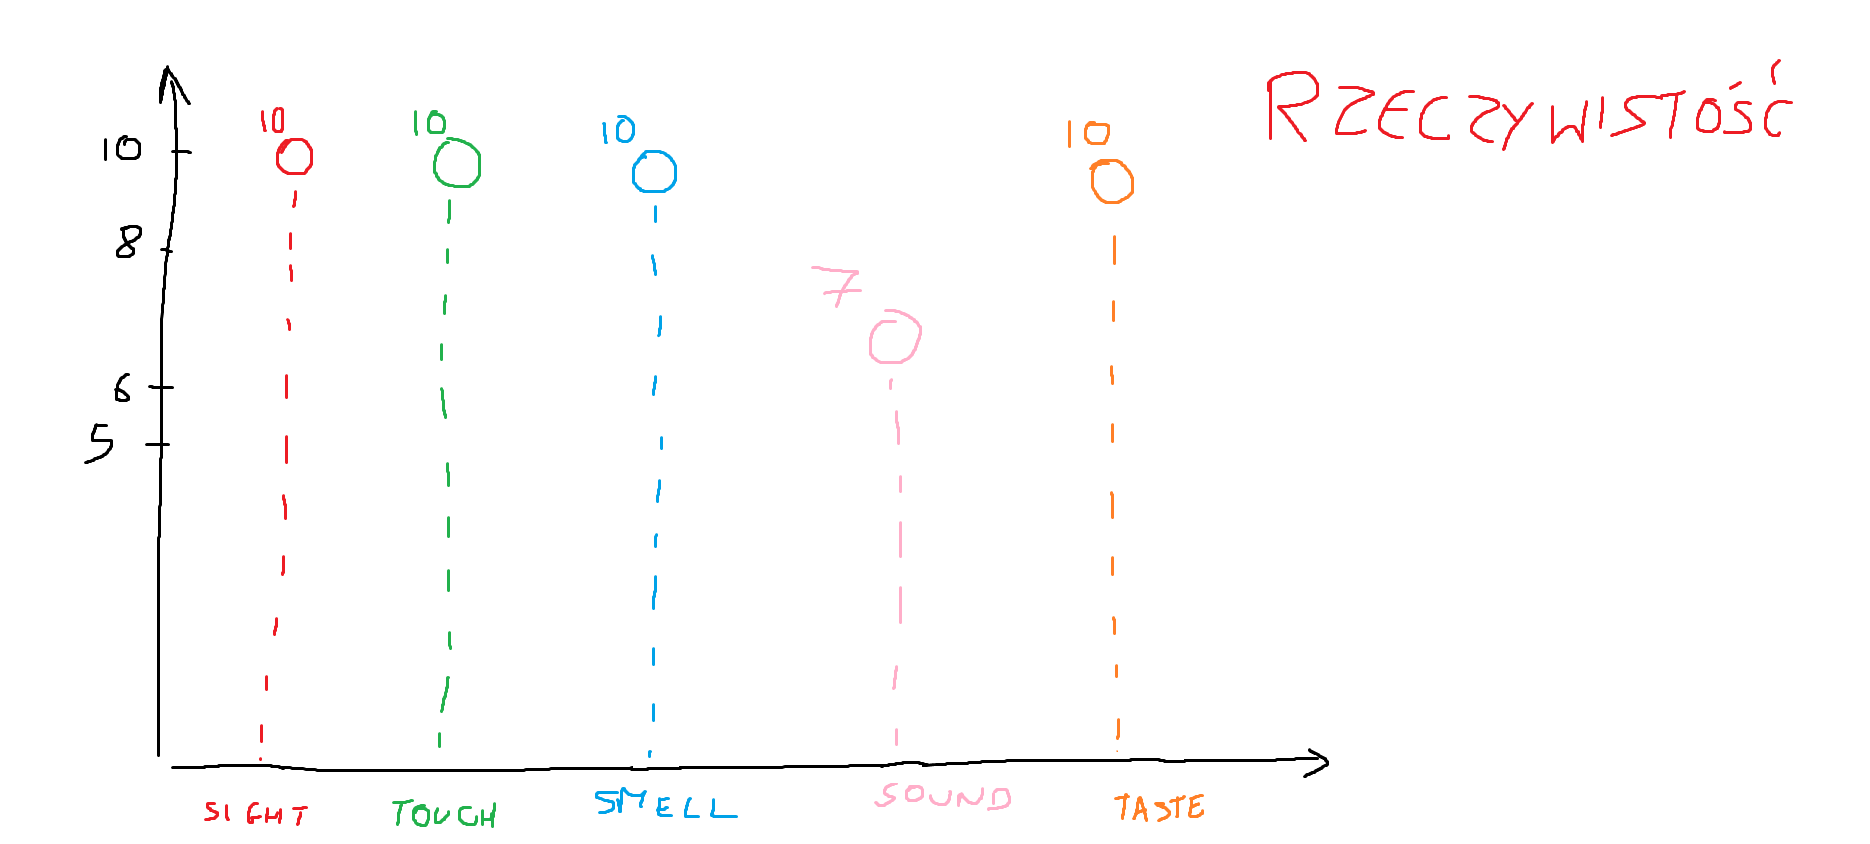 RZECZYWISTOŚĆ
10 10 10 10
10
8
7
6
5
SIGHT TOUCH SMELL SOUND TASTE